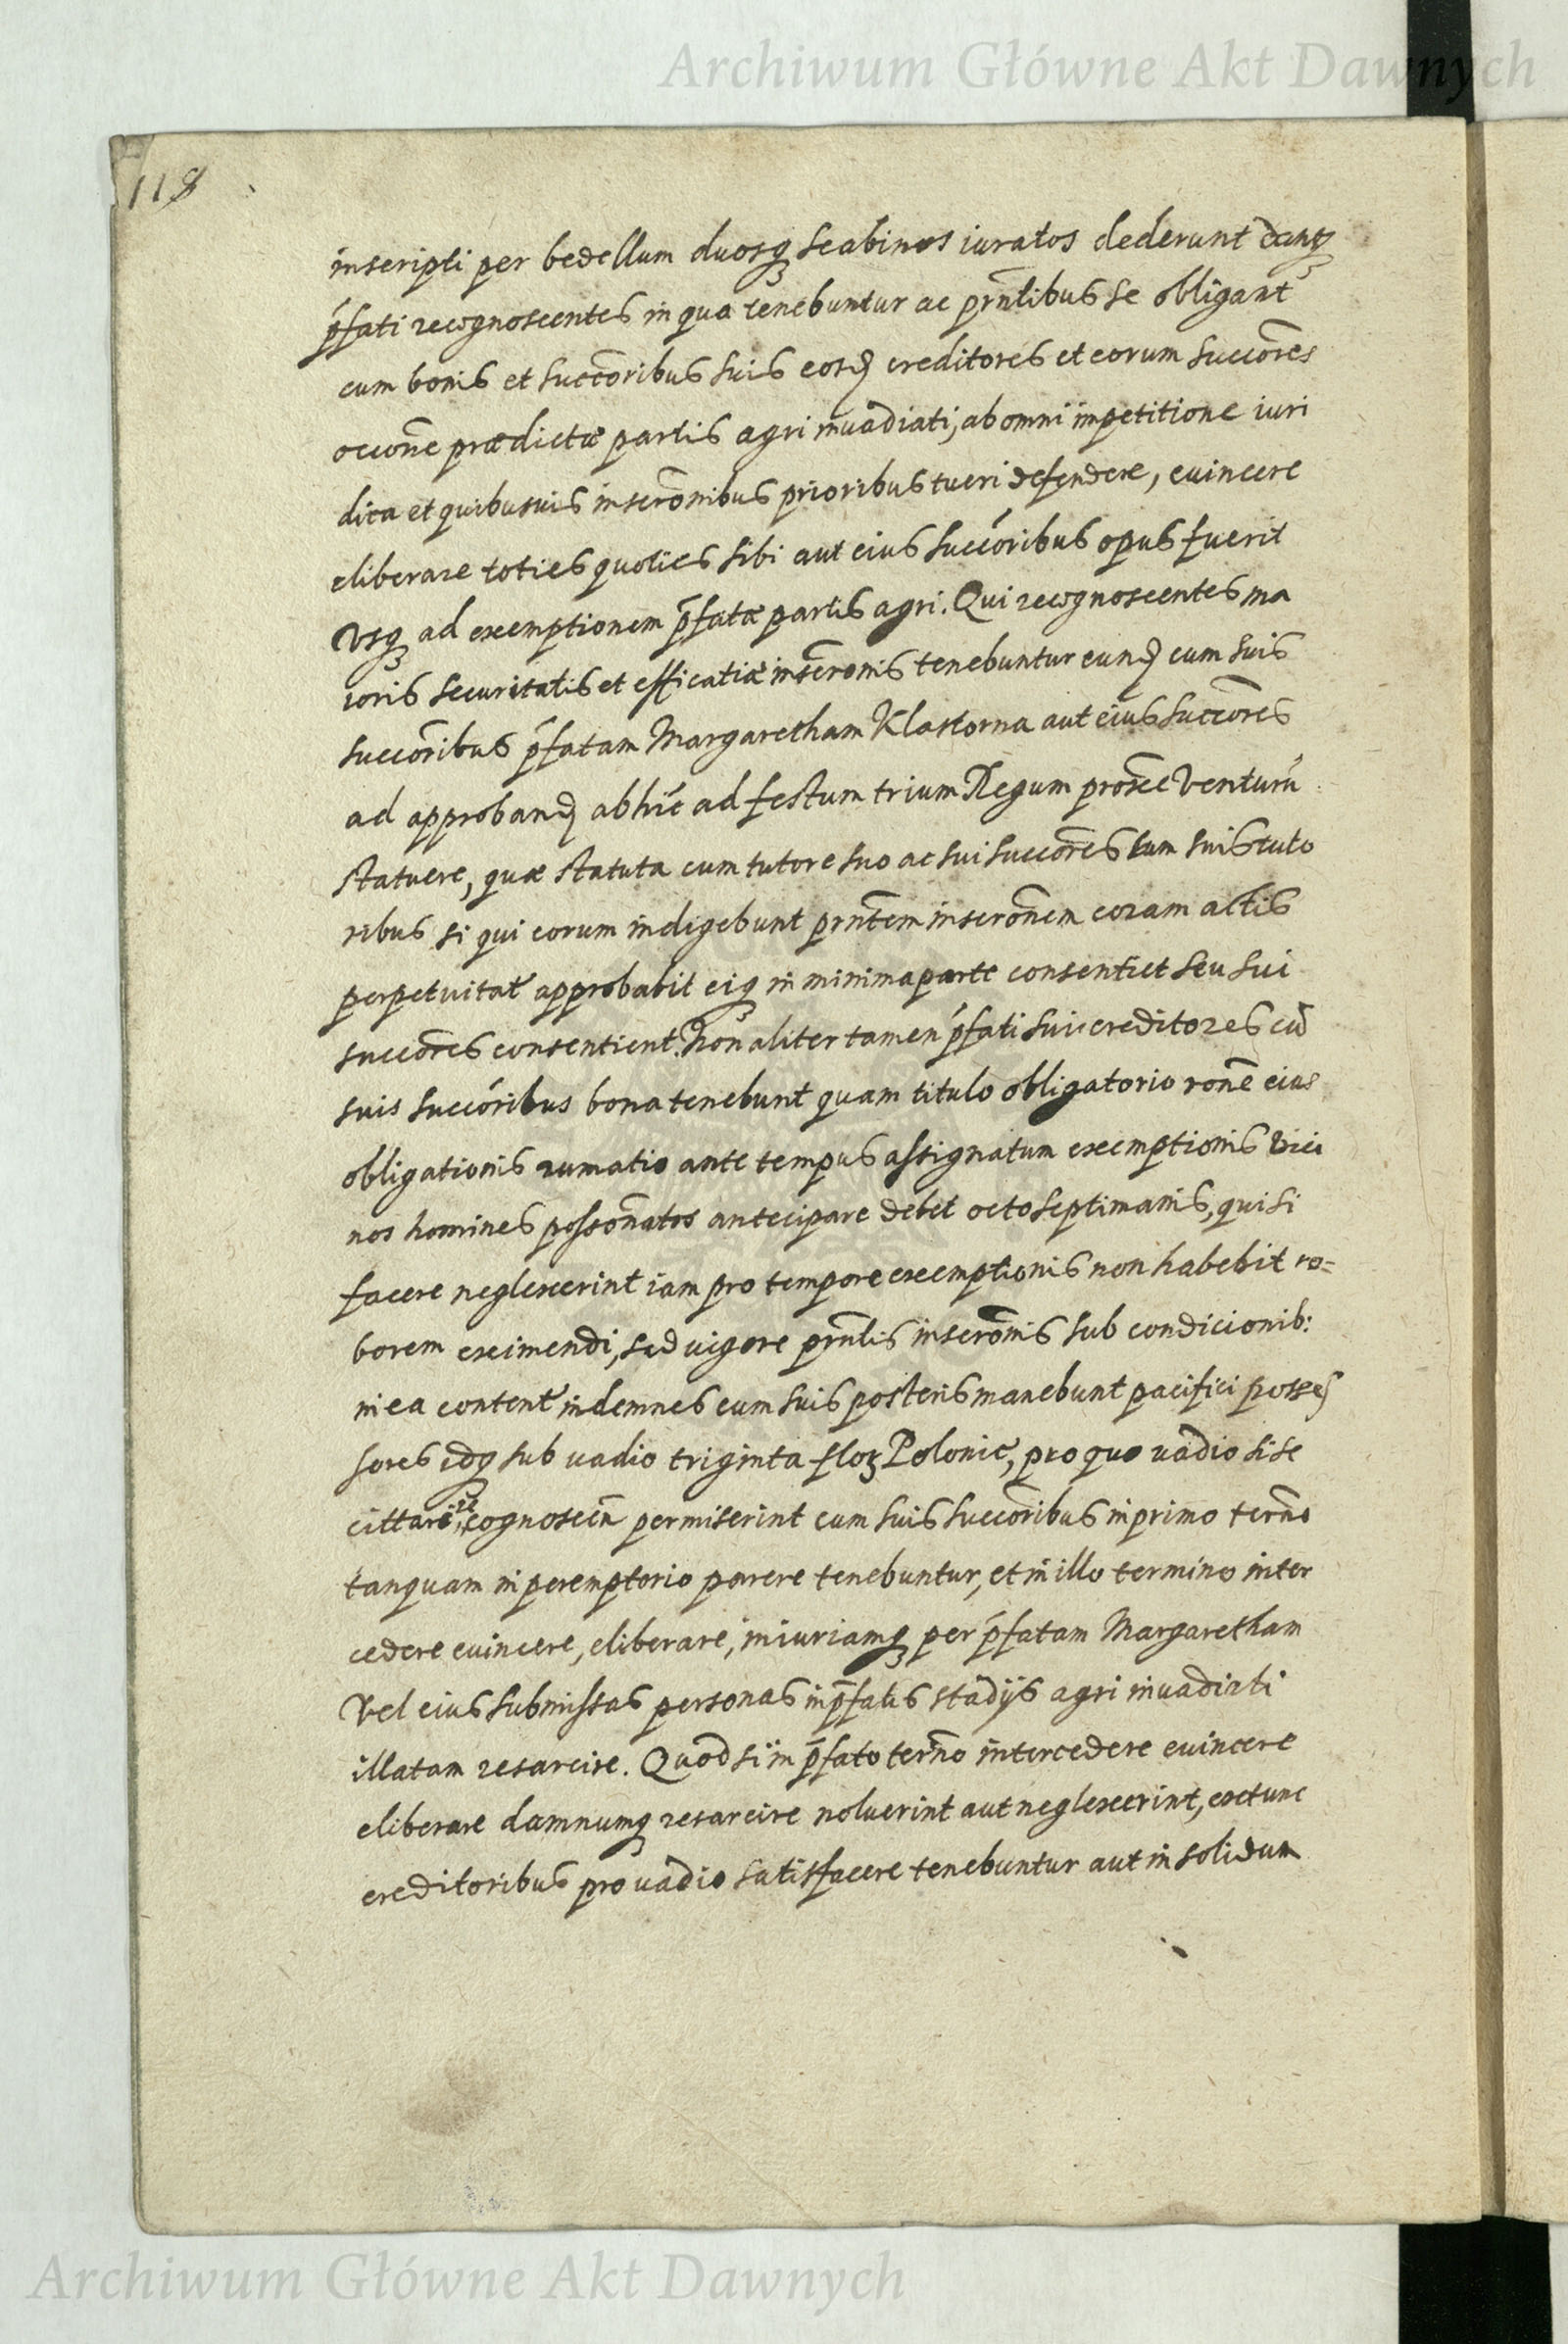 Archiwum Główne Akt Dawnych
118
inscripti per bedellum duosq scabinos iuratos dederunt dantq
p̃fati recognoscentes in qua tenebuntur ac prñtibus se obligant
cum bonis et succõribus suis eosd creditores et eorum succõres
occõne prædictæ partis agri invadiati, ab omni impetitione iuri
dica et quibusuis inscrõnibus prioribus tueri defendere, euincere
eliberare toties quoties sibi aut eius succõribus opus fuerit
Vsq ad exemptionem p̃fatæ partis agri. Qui recognoscentes ma
ioris securitatis et efficatiæ inscrõnis tenebuntur eund cum suis
succõribus p̃fatam Margaretham Klastorna aut eius succõres
ad approband abhĩc ad festum trium Regum proxẽ venturũ
statuere, quæ statuta cum tutore suo ac sui succõres cum suis tuto
ribus si qui eorum indigebunt prñtem inscrõnem coram actis
perpetuitat̃ approbabit eiq in minima parte consentiet seu sui
succõres consentient. Non aliter tamen p̃fati sui creditores cũ
suis succõribus bona tenebunt quam titulo obligatorio rõne eius
obligationis rumatio ante tempus assignatum exemptionis vici
nos homines possõnatos antecipare debet octo septimanis, qui si
facere neglexerint iam pro tempore exemptionis non habebit ro=
borem eximendi, sed uigore prñtis inscrõnis sub condicionib:
in ea content̃ indemnes cum suis posteris manebunt pacifici posses
sores idq sub uadio triginta floꝝ Polonic̃, pro quo uadio si se
cittari, recognoscẽn permiserint cum suis succõribus in primo terñno
tanquam in peremptorio parere tenebuntur, et in illo termino inter
cedere euincere, eliberare, iniuriamq per p̃fatam Margaretham
Vel eius submissas personas in p̃fatis stadijs agri invadiati
illatam resarcire. Quod si in p̃fato terñno intercedere euincere
eliberare damnumq resarcire noluerint aut neglexerint, extunc
creditoribus pro uadio satisfacere tenebuntur aut in solidum
Archiwum Główne Akt Dawnych